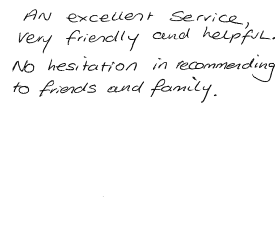 An excellent service,
very friendly and helpful.
No hesitation in recommending
to friends and family.